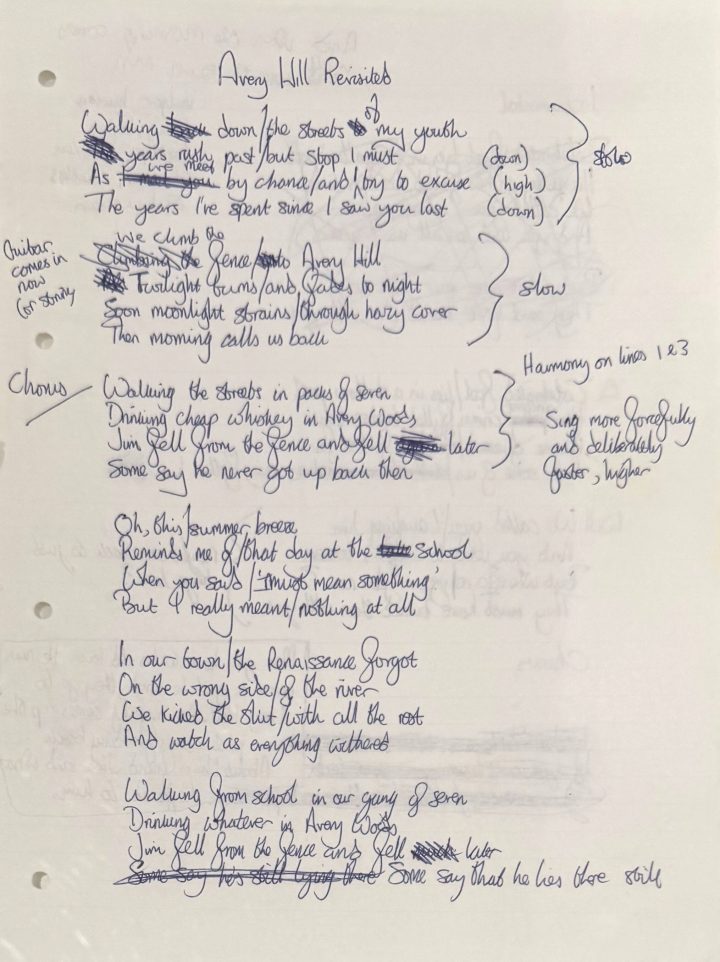 Avery Hill Revisited
Walking down/the streets of my youth
years rush past/but stop I must (down)
As we meet by chance/and I try to excuse (high)
The years I've spent since I saw you last (down)
slow
We climb the
Climbing the fence/into Avery Hill
Twilight turns/and fades to night
Soon moonlight strains/through hazy cover
Then morning calls us back
slow
Guitar
comes in
now
(or strings
Chorus
Walking the streets in packs of seven
Drinking cheap whiskey in Avery Woods
Jim fell from the fence and fell later
Some say he never got up back then
Harmony on lines 1 & 3
Sing more forcefully
and deliberately
faster, higher
Oh, this/summer breeze
Reminds me of/that day at the school
When you said/'I must mean something'
But I really meant/nothing at all
In our town/the Renaissance forgot
On the wrong side/of the river
We kicked the shit/with all the rest
And watch as everything withered
Walking from school in our gang of seven
Drinking whatever in Avery Woods
Jim fell from the fence and fell later
Some say he's still lying there Some say that he lies there still